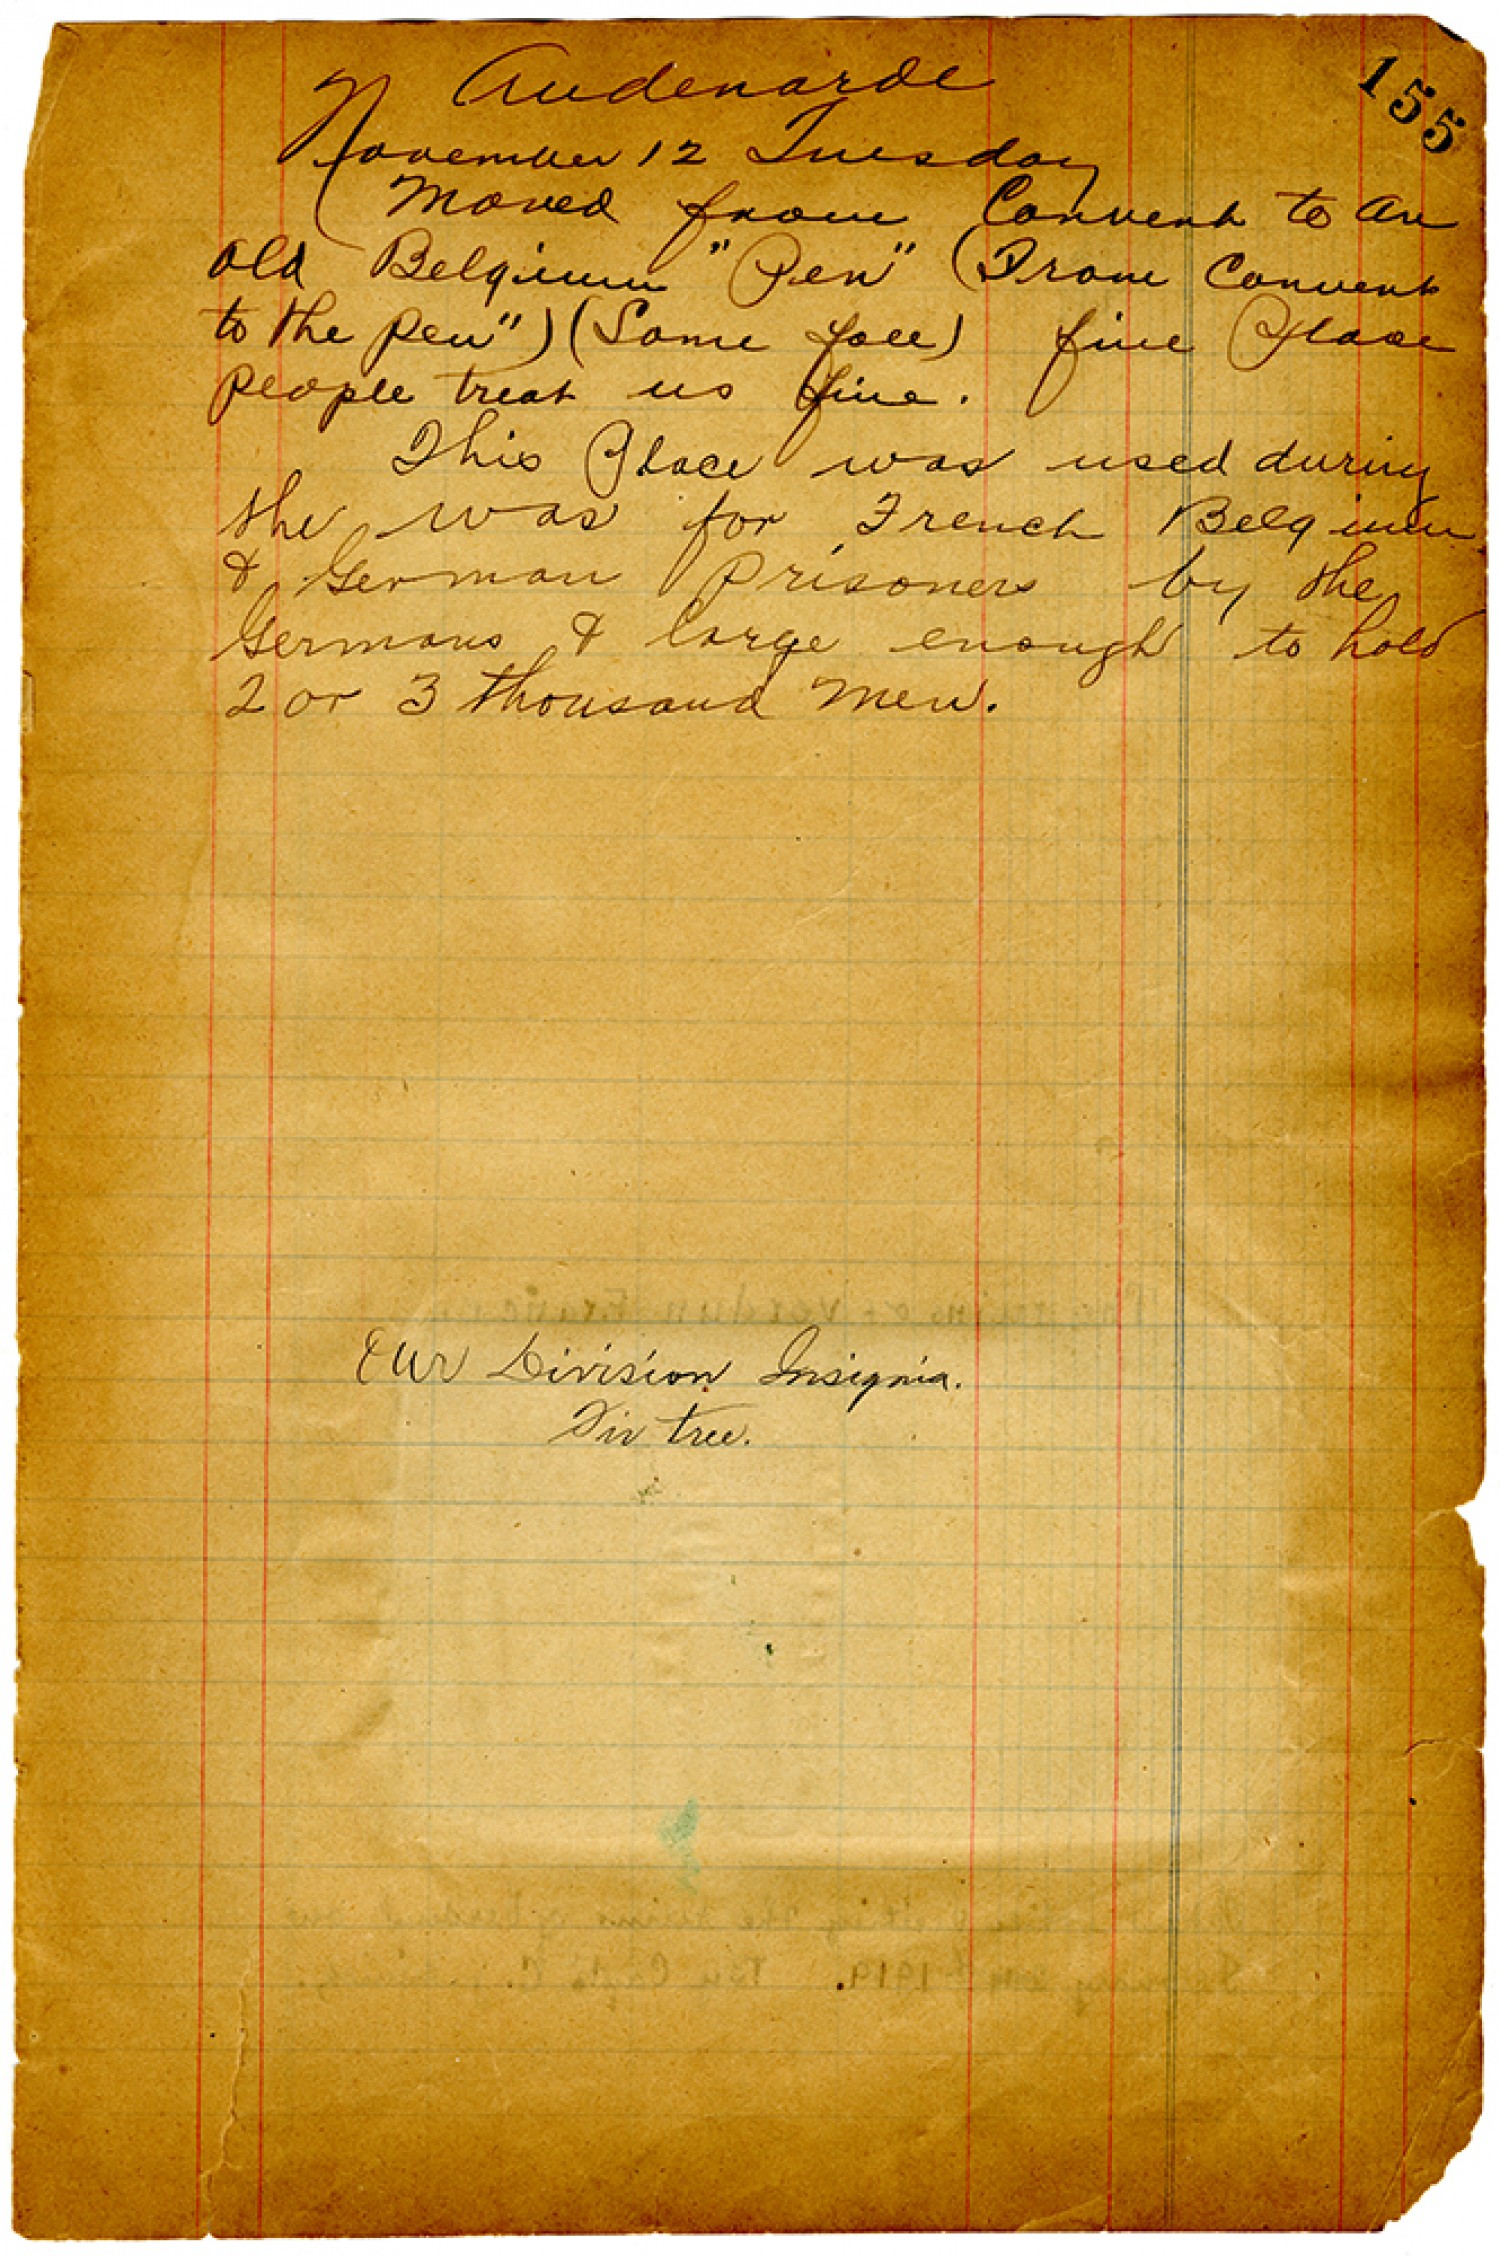 155
Audenarde
November 12 Tuesday
Moved from Convent to an
old Belgium "Pen" (From Convent
to the pen") (Some) fine Place
people treat us fine.
This Place was used during
the was for French Belgium
& German Prisoners by the
Germans & large enough to hold
2 or 3 thousand men.
Our Division Insignia.
Fir tree.